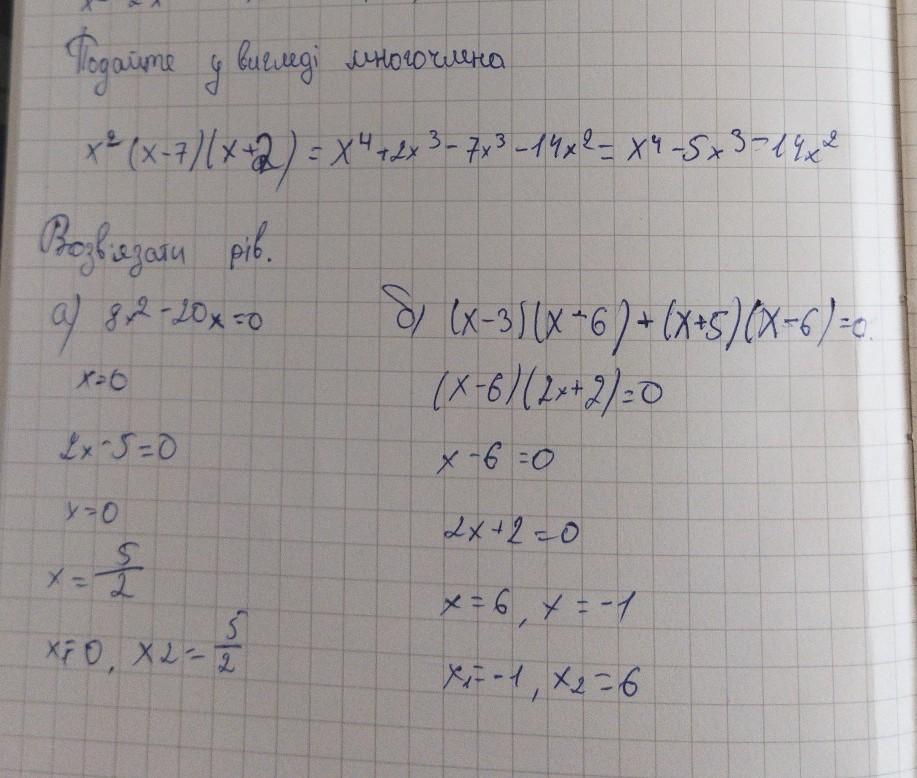 Подайте у вигледі многочлена
x²(x-7)(x+2) = x⁴+2x³-7x³-14x² = x⁴-5x³-14x²
Возв'язати рів.
а) 8x²-20x=0
x=0
2x-5=0
x=0
x=5/2
x₁=0, x2=5/2
б) (x-3)(x-6)+(x+5)(x-6)=0.
(x-6)(2x+2)=0
x-6=0
2x+2=0
x=6, x=-1
x₁=-1, x₂=6